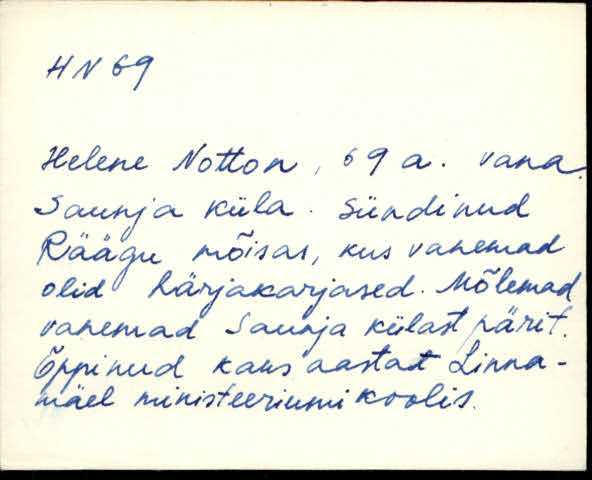 HN 69
Helene Notton, 69 a. vana.
Saunja küla. Sündinud
Räägu mõisas, kus vanemad
olid härjakarjased. Mõlemad
vanemad Saunja külast pärit.
Õppinud kaks aastat Linna-
mäel ministeeriumi koolis.